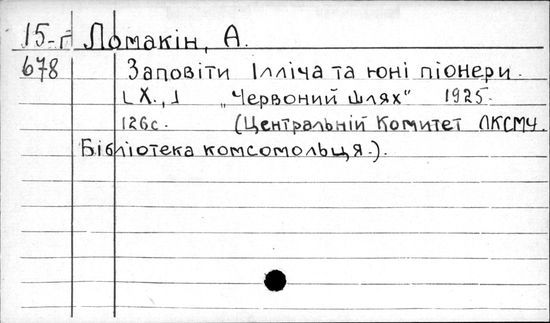 15-г Ломакін, А.
678 Заповіти Ілліча та юні піонери.
[Х.,] „Червоний шлях" 1925.
126с. (Центральній Комитет ЛКСМУ.
Бібліотека комсомольця.).